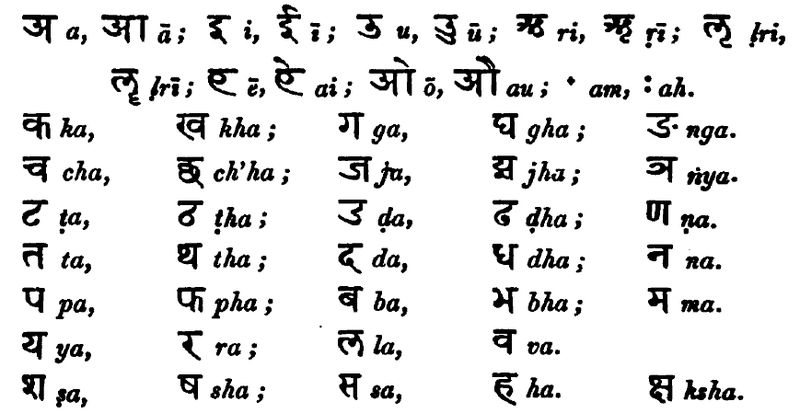 अ a, आ ā; इ i, ई ī; उ u, ऊ ū; ऋ ri, ॠ ṛī; ऌ ḷri,
ॡ ḷrī; ए ē, ऐ ai; ओ ō, औ au; ˙ am, : ah.
क ka, ख kha; ग ga, घ gha; ङ nga.
च cha, छ ch’ha; ज ja, झ jha; ञ ṅya.
ट ṭa, ठ ṭha; उ ḍa, ढ ḍha; ण ṇa.
त ta, थ tha; द da, ध dha; न na.
प pa, फ pha; ब ba, भ bha; म ma.
य ya, र ra; ल la, व va.
श ṣa, ष sha; स sa, ह ha. क्ष ksha.